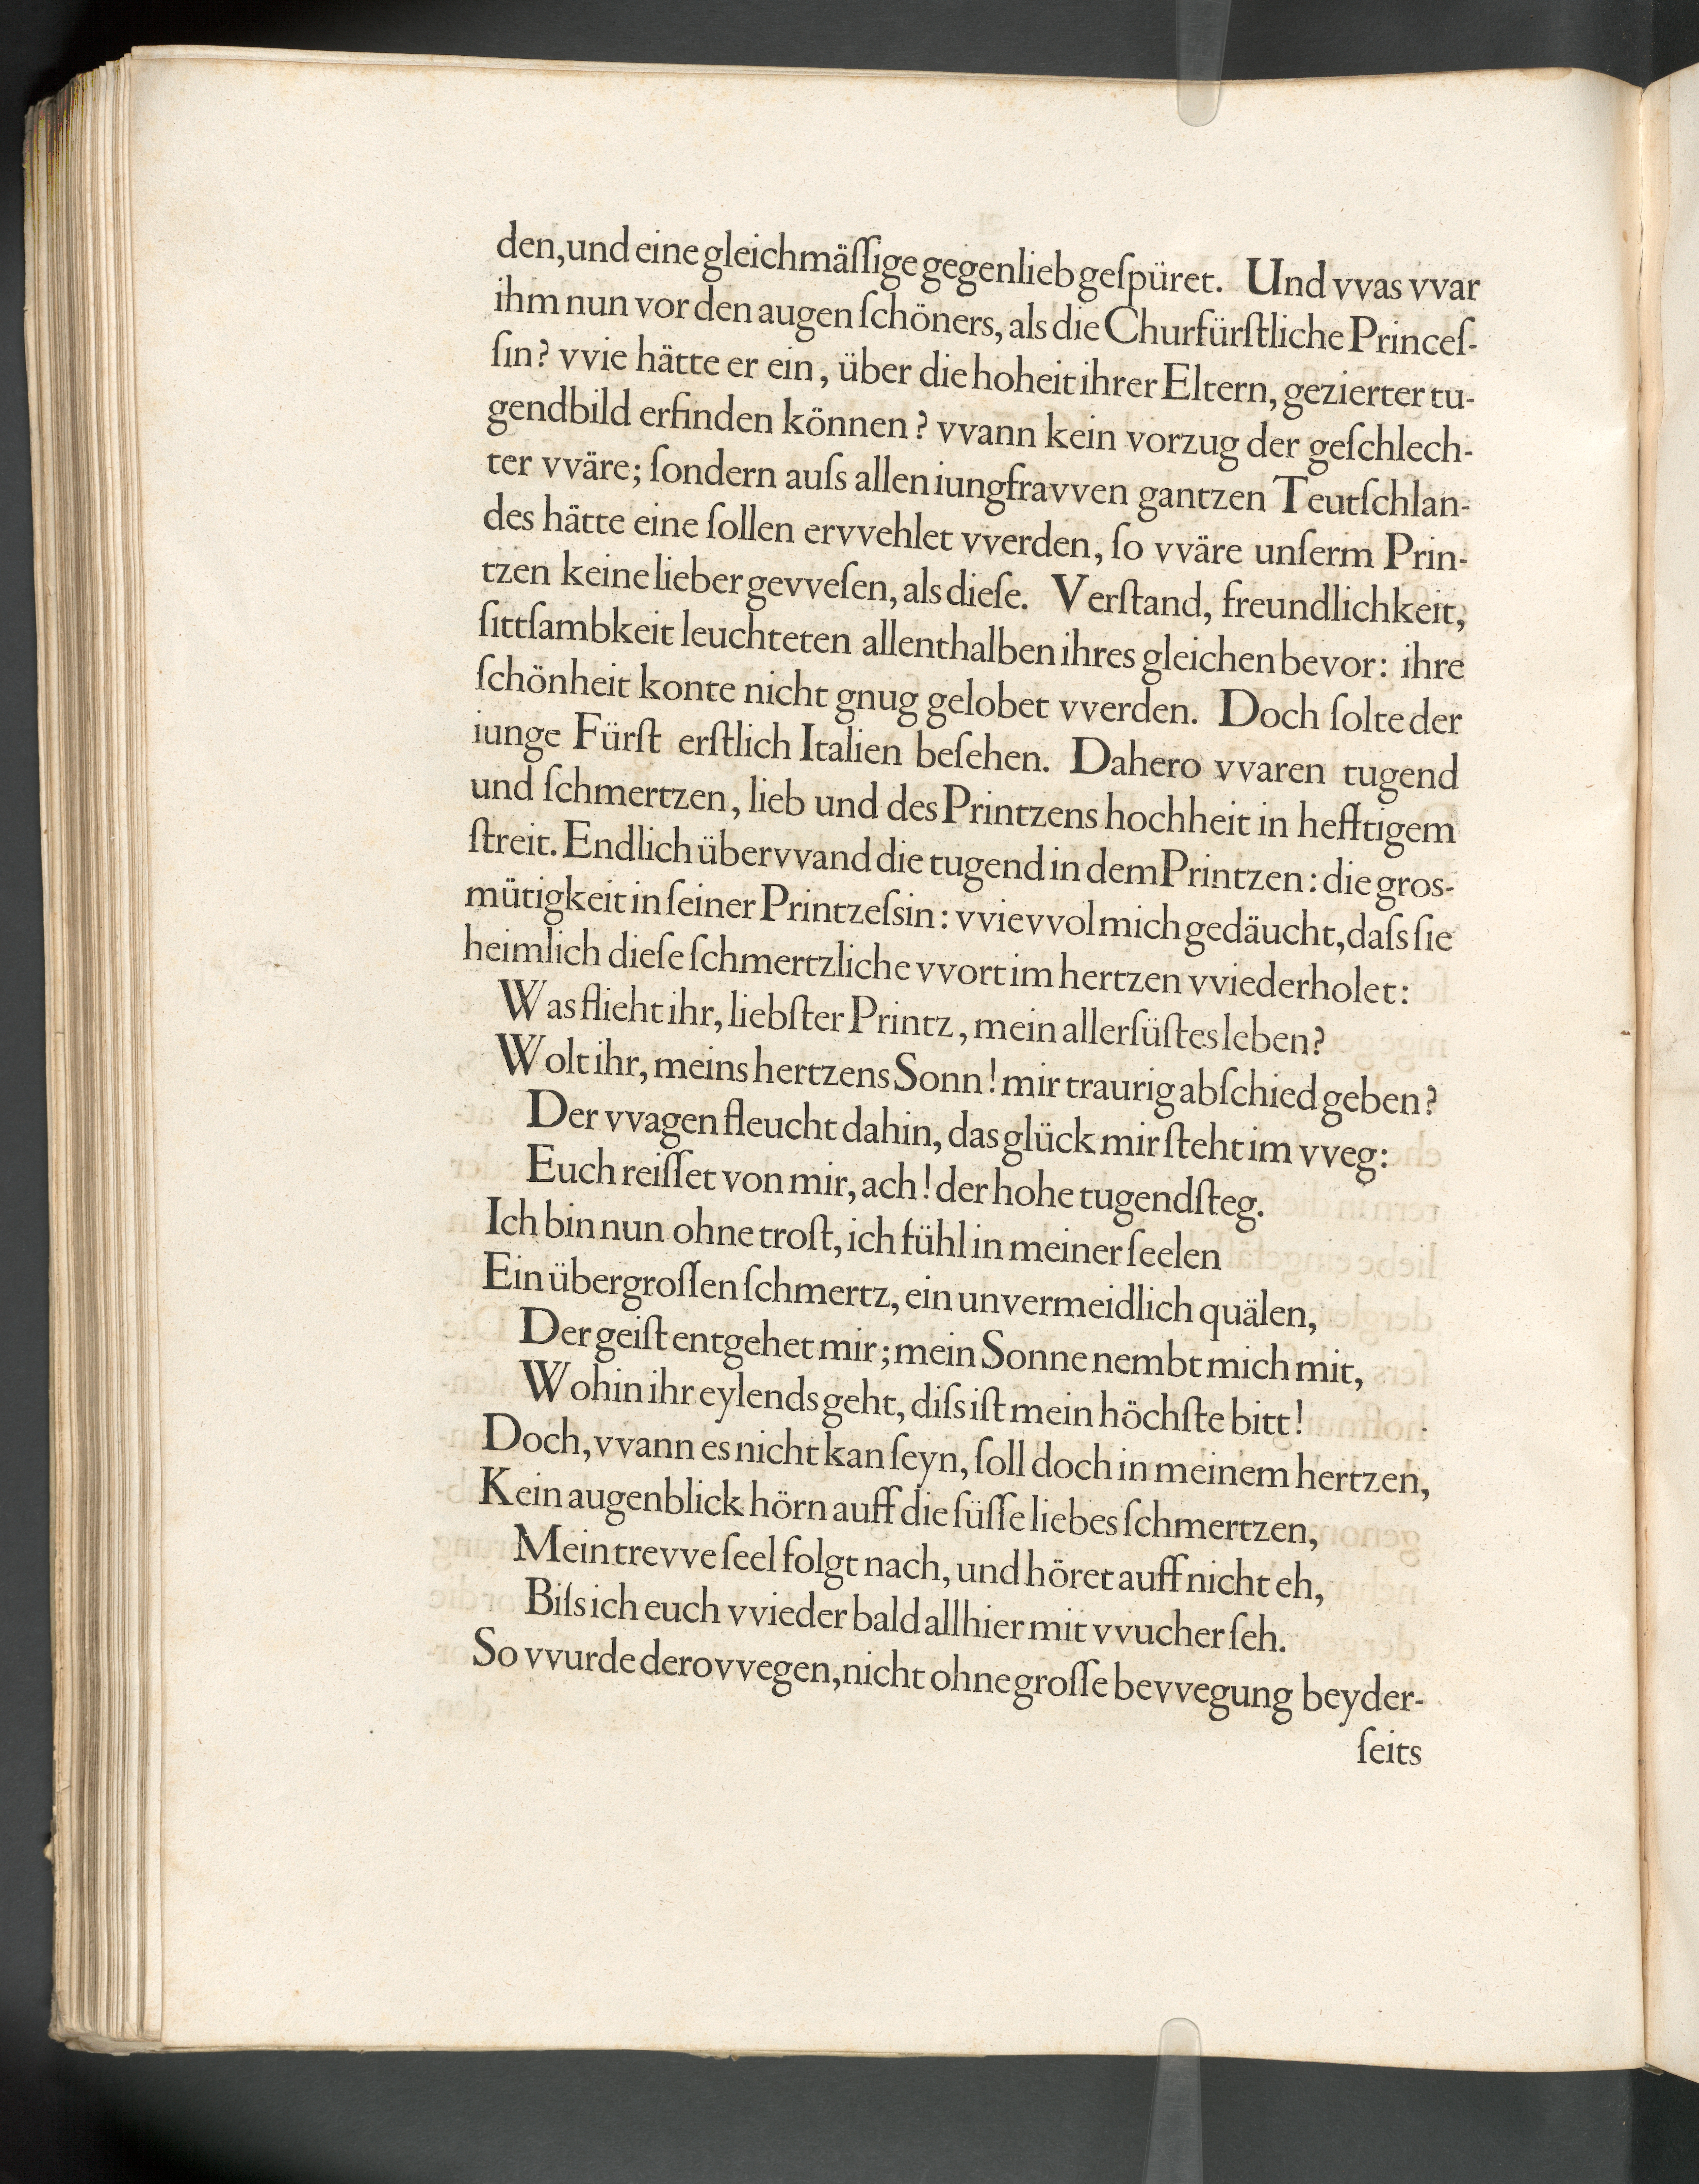 den, und eine gleichmäſſige gegenlieb geſpüret. Und vvas vvar
ihm nun vor den augen ſchöners, als die Churfürſtliche Princeſ-
ſin? vvie hätte er ein, über die hoheit ihrer Eltern, gezierter tu-
gendbild erfinden können? vvann kein vorzug der geſchlech-
ter vväre; ſondern auſs allen iungfravven gantzen Teutſchlan-
des hätte eine ſollen ervvehlet vverden, ſo vväre unſerm Prin-
tzen keine lieber gevveſen, als dieſe. Verſtand, freundlichkeit,
ſittſambkeit leuchteten allenthalben ihres gleichen bevor: ihre
ſchönheit konte nicht gnug gelobet vverden. Doch ſolte der
iunge Fürſt erſtlich Italien beſehen. Dahero vvaren tugend
und ſchmertzen, lieb und des Printzens hochheit in hefftigem
ſtreit. Endlich übervvand die tugend in dem Printzen: die gros-
mütigkeit in ſeiner Printzeſsin: vvievvol mich gedäucht, daſs ſie
heimlich dieſe ſchmertzliche vvort im hertzen vviederholet:
Was flieht ihr, liebſter Printz, mein allerſüſtes leben?
Wolt ihr, meins hertzens Sonn! mir traurig abſchied geben?
Der vvagen fleucht dahin, das glück mir ſteht im vveg:
Euch reiſſet von mir, ach! der hohe tugendſteg.
Ich bin nun ohne troſt, ich fühl in meiner ſeelen
Ein übergroſſen ſchmertz, ein unvermeidlich quälen,
Der geiſt entgehet mir; mein Sonne nembt mich mit,
Wohin ihr eylends geht, diſs iſt mein höchſte bitt!
Doch, vvann es nicht kan ſeyn, ſoll doch in meinem hertzen,
Kein augenblick hörn auff die ſüſſe liebes ſchmertzen,
Mein trevve ſeel folgt nach, und höret auff nicht eh,
Biſs ich euch vvieder bald allhier mit vvucher ſeh.
So vvurde derovvegen, nicht ohne groſſe bevvegung beyder-
ſeits